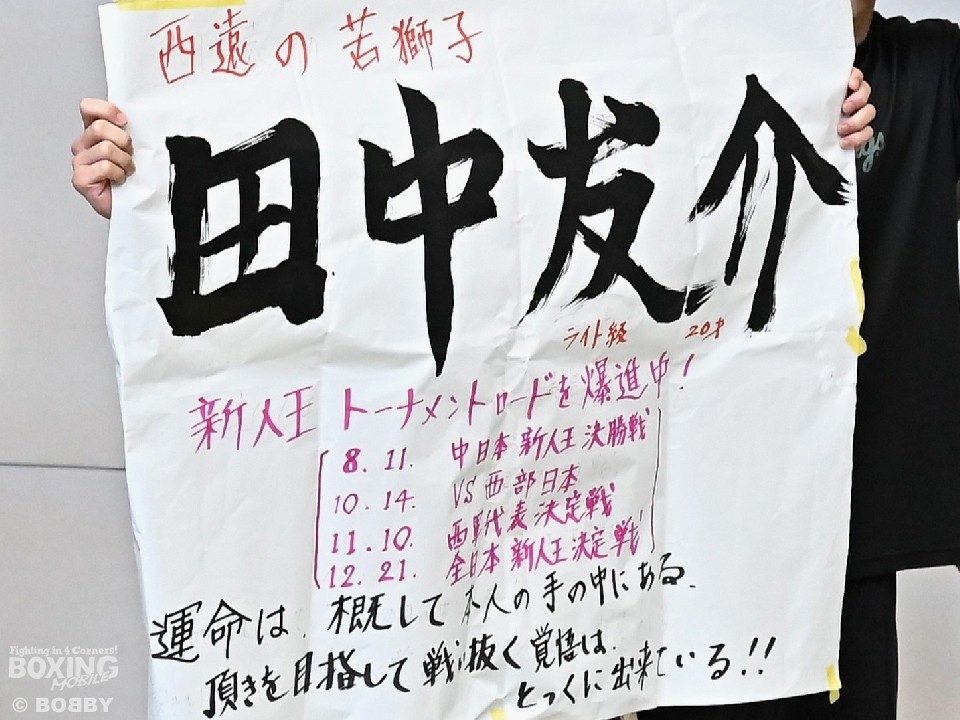 西遠の若獅子
田中友介
ライト級 20才
新人王トーナメントロードを爆進中!
8.11. 中日本新人王決勝戦
10.14. VS西部日本
11.10. 西軍代表決定戦
12.21. 全日本新人王決定戦
運命は、概して本人の手の中にある、
頂きを目指して戦い抜く覚悟は、
とっくに出来ている!!
Fighting in 4 Corners!
BOXING
MOBILE
© BOBBY